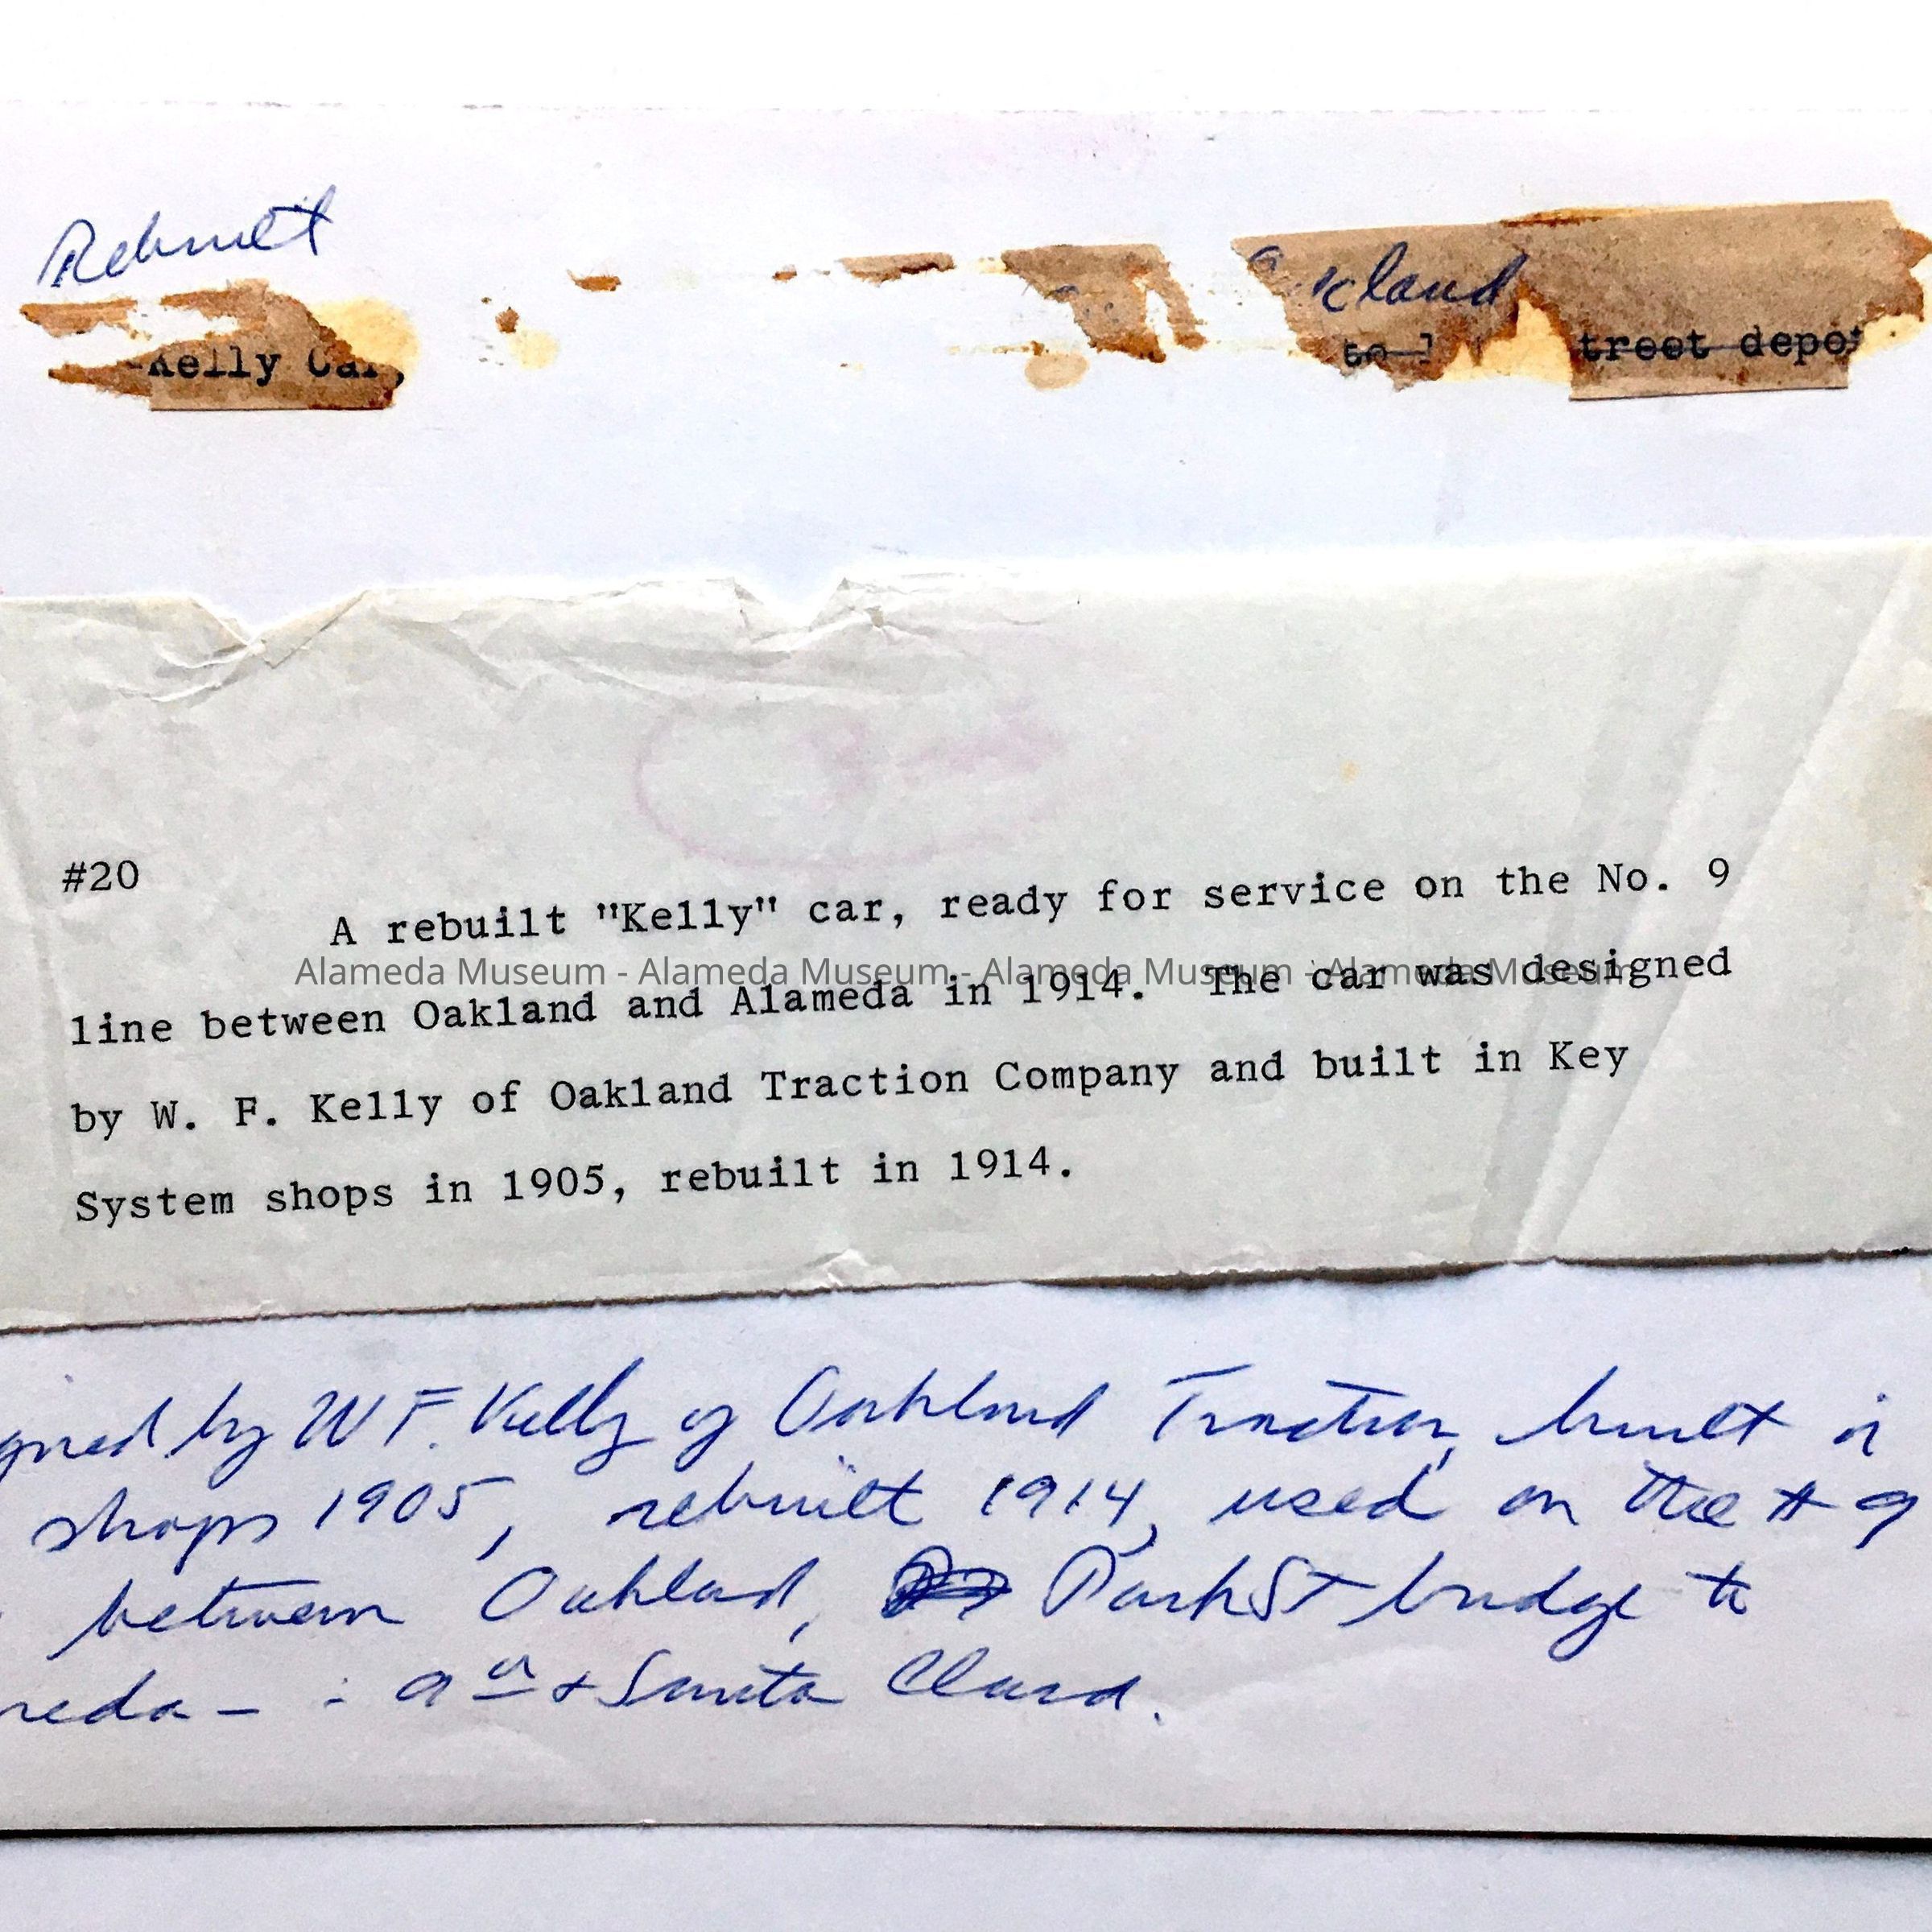 Rebuilt
kland
Kelly Car,
to treet depot
#20
A rebuilt "Kelly" car, ready for service on the No. 9
Alameda Museum - Alameda Museum - Alameda Museum - Alameda Museum
line between Oakland and Alameda in 1914. The car was designed
by W. F. Kelly of Oakland Traction Company and built in Key
System shops in 1905, rebuilt in 1914.
gned by W F. Kelly of Oakland Traction, built i
shops 1905, rebuilt 1914, used on the # 9
between Oakland, Park St bridge to
meda - : 9th & Santa Clara.